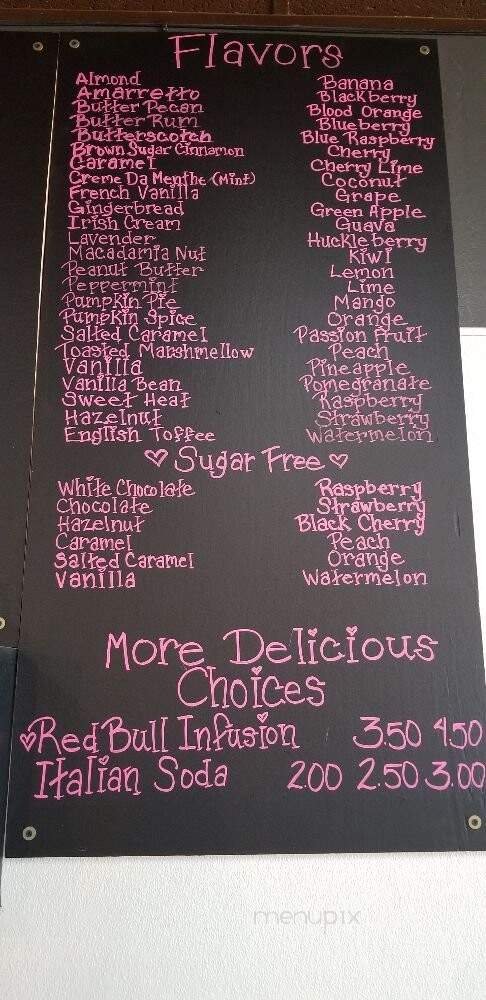 Flavors
Almond
Amarretto
Butter Pecan
Butter Rum
Butterscotch
Brown Sugar Cinnamon
Caramel
Creme Da Menthe (Mint)
French Vanilla
Gingerbread
Irish Cream
Lavender
Macadamia Nut
Peanut Butter
Peppermint
Pumpkin Pie
Pumpkin Spice
Salted Caramel
Toasted Marshmellow
Vanilla
Vanilla Bean
Sweet Heat
Hazelnut
English Toffee
Banana
Blackberry
Blood Orange
Blueberry
Blue Raspberry
Cherry
Cherry Lime
Coconut
Grape
Green Apple
Guava
Huckleberry
Kiwi
Lemon
Lime
Mango
Orange
Passion Fruit
Peach
Pineapple
Pomegranate
Raspberry
Strawberry
Watermelon
♡ Sugar Free ♡
White Chocolate
Chocolate
Hazelnut
Caramel
Salted Caramel
Vanilla
Raspberry
Strawberry
Black Cherry
Peach
Orange
Watermelon
More Delicious
Choices
♡Red Bull Infusion 3.50 4.50
Italian Soda 2.00 2.50 3.00
menupix